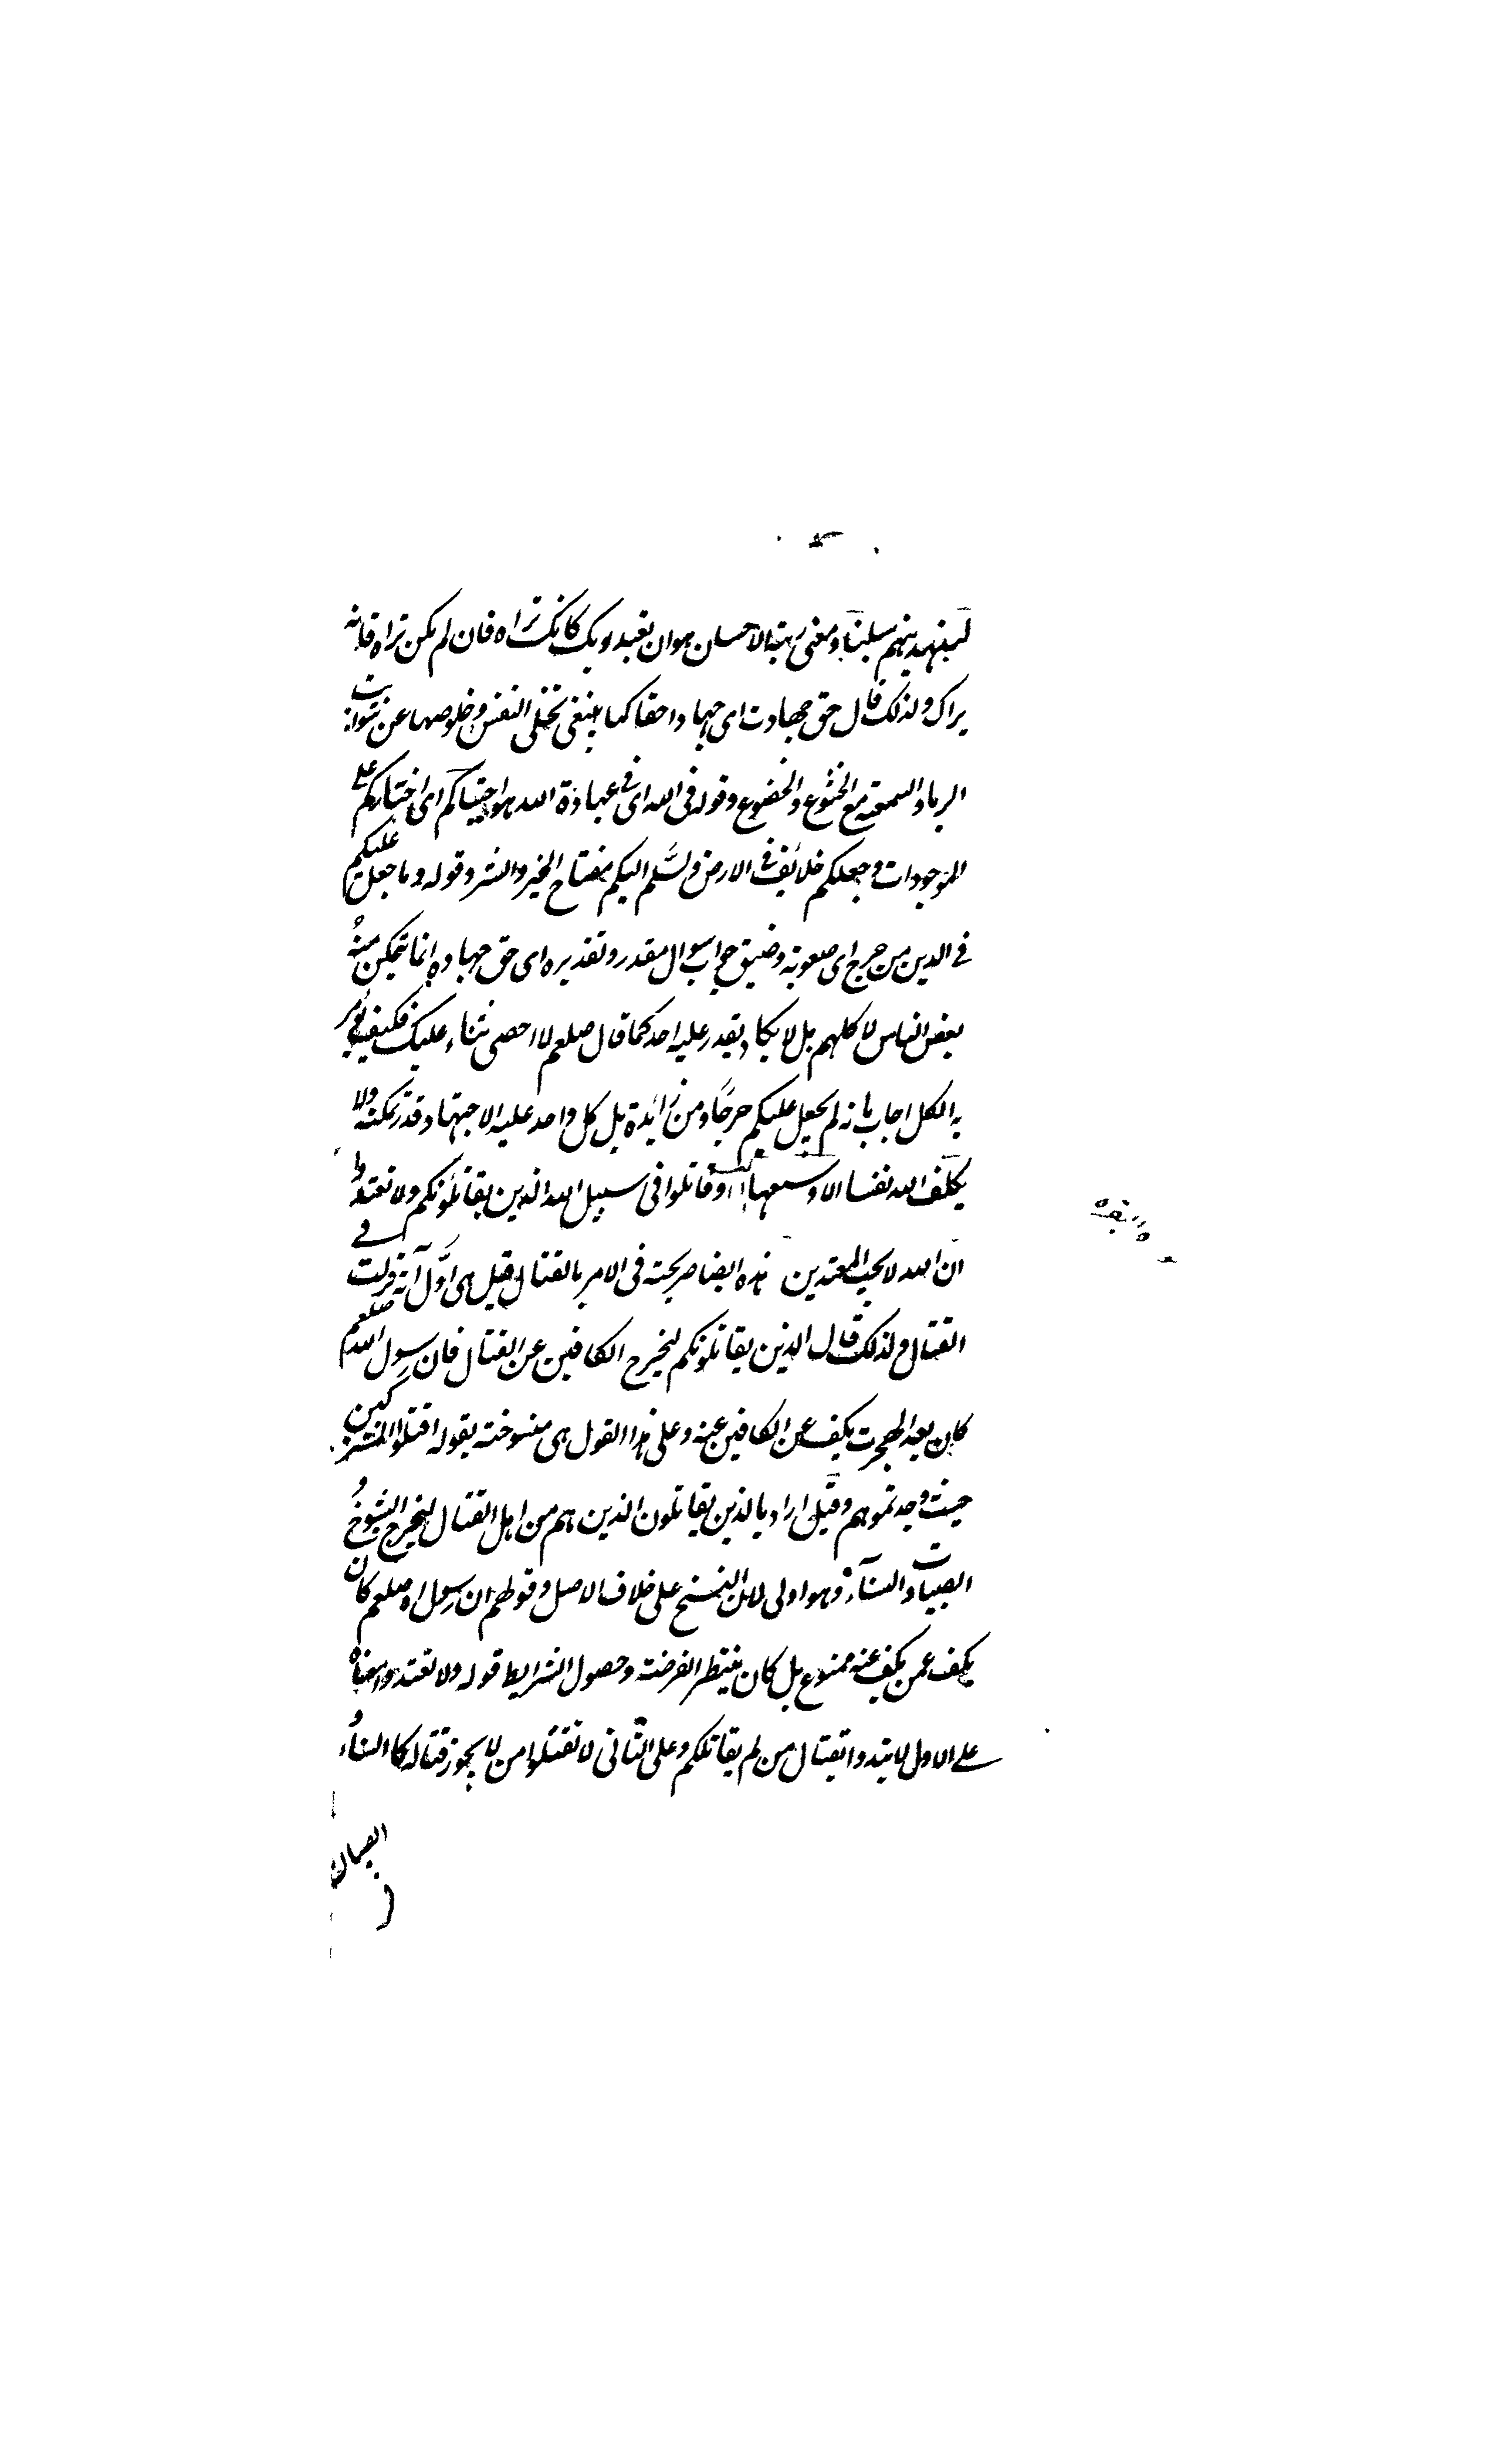 لنهدينهم سبلنا ومعنى رتبة الاحسان هو ان تعبد ربك كانك تراه فان لم تكن تراه فانه
يراك ولذلك قال حق جهاده اى جهادا حقا كما ينبغى تخلى النفس وخلوصها عن شوائب
الرياء والسمعة مع الخشوع والخضوع وقوله فى الله اى فى عبادة الله هو اجتباكم اى اختاركم على
الموجودات وجعلكم خلائف فى الارض وسلم اليكم مفتاح الخير والشر وقوله وما جعل عليكم
فى الدين من حرج اى صعوبة وضيق جواب سوال مقدر وتقديره اى حق جهاده انما يتمكن منه
بعض الناس لا كلهم بل لا يكاد يقدر عليه احد كما قال صلعم لا احصى ثناء عليك فكيف يؤمر
به الكل اجاب بانه لم يجعل عليكم حرجا ومن زائدة بل كل واحد عليه الاجتهاد قدر تمكنه ولا
يكلف الله نفسا الا وسعها وقاتلوا فى سبيل الله الذين يقاتلونكم ولا تعتدوا
ان الله لا يحب المعتدين هذه ايضا صريحة فى الامر بالقتال وقيل هى اول آية نزلت فى
القتال ولذلك قال الذين يقاتلونكم ليخرج الكافين عن القتال فان رسول الله صلعم
كان بعد الهجرت يكف عن الكافين عنه وعلى هذا القول هى منسوخة بقوله اقتلوا المشركين
حيث وجدتموهم وقيل اراد بالذين يقاتلون الذين هم من اهل القتال ليخرج الشيوخ و
الصبيان والنسآء وهو اولى لان النسخ على خلاف الاصل وقولهم ان رسول الله صلعم كان
يكف عمن يكف عنه ممنوع بل كان ينتظر الفرضة وحصول الشرايط قوله ولا تعتدوا معناه
على الاول لا تبتدوا بقتال من لم يقاتلكم وعلى الثانى لا تقتلوا من لا يجوز قتاله كالنساء و
الصبيان